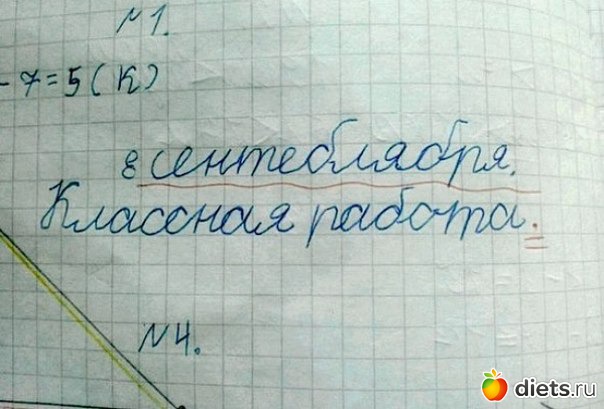 N1.
- 7=5(К)
8 сентеблября.
Классная работа.
N4.
diets.ru